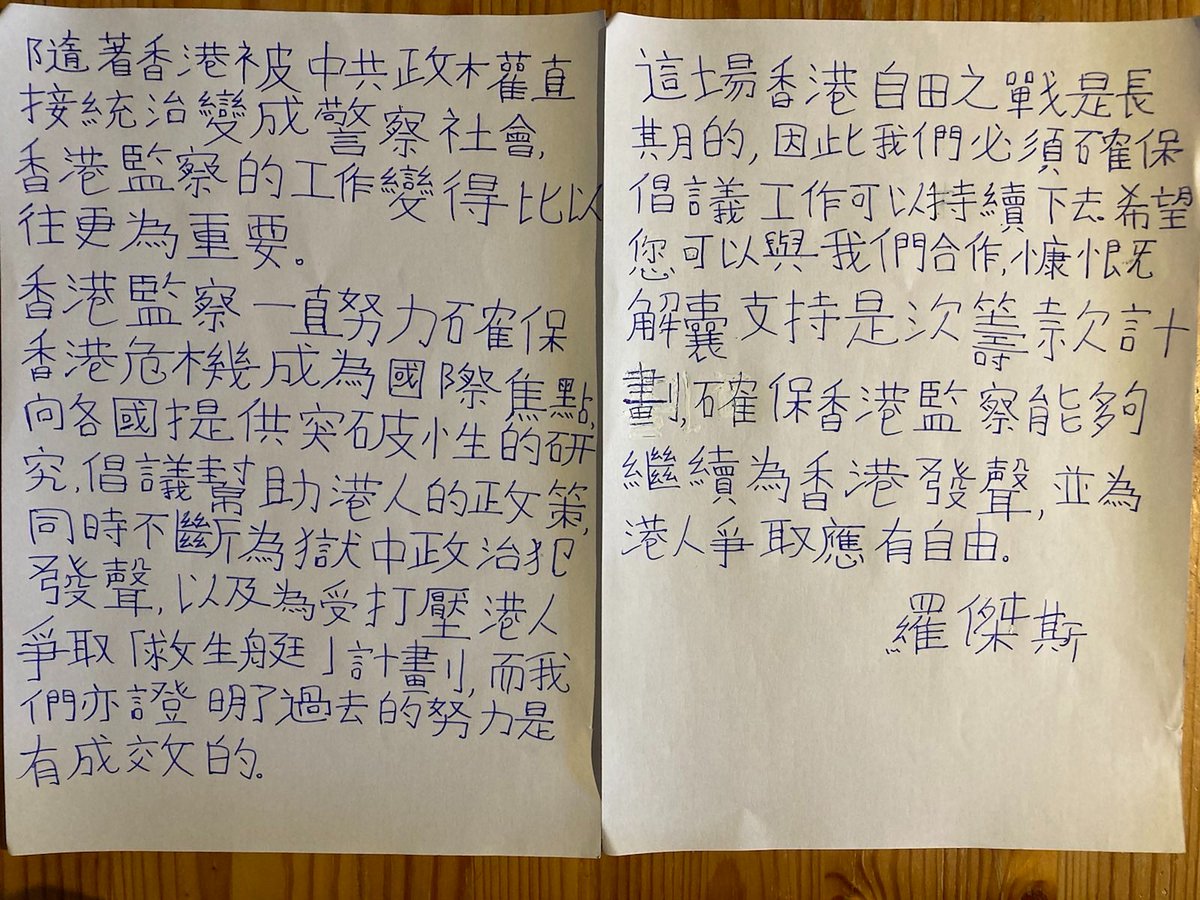 隨著香港被中共政權直
接統治變成警察社會,
香港監察的工作變得比以
往更為重要。
香港監察一直努力確保
香港危機成為國際焦點,
向各國提供突破性的研
究,倡議幫助港人的政策,
同時不斷為獄中政治犯
發聲,以及為受打壓港人
爭取「救生艇」計劃,而我
們亦證明了過去的努力是
有成效的。
這場香港自由之戰是長
期的,因此我們必須確保
倡議工作可以持續下去.希望
您可以與我們合作,慷慨
解囊支持是次籌款計
劃,確保香港監察能夠
繼續為香港發聲,並為
港人爭取應有自由。
羅傑斯